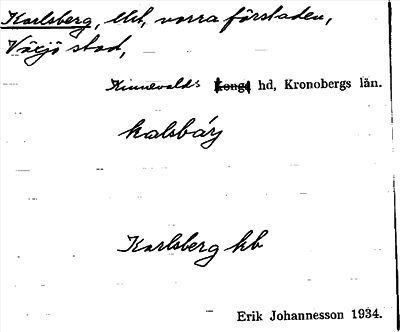 Karlsberg, lht, norra förstaden,
Växjö stad,
Kinnevalds Konga hd, Kronobergs län.
kalsbáry
Karlsberg kb
Erik Johannesson 1934.